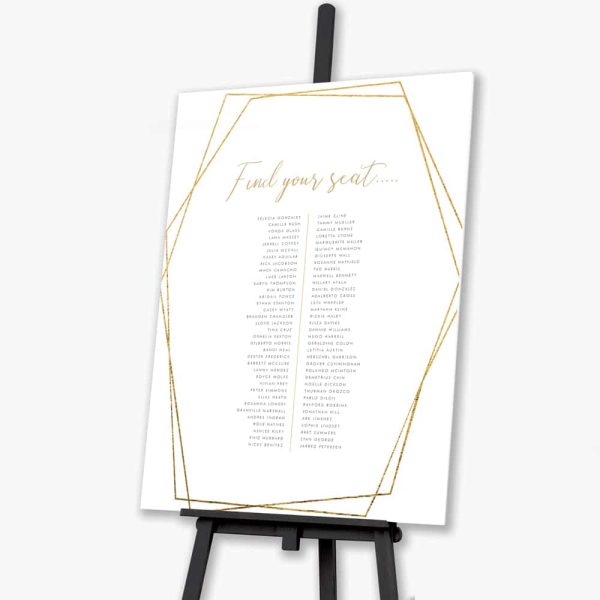 Find your seat.....
SELECIA GONZALEZ
CAMILLE RUSH
VONDA GLASS
LANA MASSEY
JERRELL COFFEY
JULIA MCCALL
KASEY AGUILAR
RICK JACOBSON
MACK CAMACHO
LUKE LARSON
KARYN THOMPSON
KIM BURTON
ABIGAIL PONCE
ETHAN STANTON
CASEY WYATT
BRANDEN CHANDLER
LLOYD JACKSON
TINA CRUZ
ORNELIA SEXTON
GILBERTO NORRIS
RANDI NEAL
DEXTER FREDERICK
BARRETT MCCLURE
SANNY MENDEZ
ROYCE WOLFE
VIVIAN FREY
PETER SIMMONS
ELIAS HEATH
ROSANNA LONDRY
GRANVILLE MARSHALL
ANDRES INGRAM
ROSE HAYNES
ASHLEE RILEY
ENID HUBBARD
NICKY BENITEZ
JAIME CLINE
TAMMY MUELLER
CAMILLE BURNS
LORETTA STONE
MARGUERITE MILLER
QUINCY MCMAHON
GIUSEPPE WALL
ROXANNE HATFIELD
TED HARRIS
MAXWELL BENNETT
HILLARY AYALA
DANIEL GONZALEZ
ADALBERTO CROSS
LETA WHEELER
MARYANN KEINE
RICKIE HALEY
ELIZA DAVIES
DENNIS WILLIAMS
HUGO HARRELL
GERALDINE COLON
LETITIA AUSTIN
HERSCHEL GARRISON
GROVER CUNNINGHAM
ROLANDO MCINTOSH
DEMETRIUS CHIN
NOELLE DICKSON
THURMAN OROZCO
PABLO DILLON
RAYFORD ROBBINS
JONATHAN HILL
ABE JIMENEZ
SOPHIE LINDSEY
BRET SUMMERS
STAN GEORGE
JARROD PETERSEN